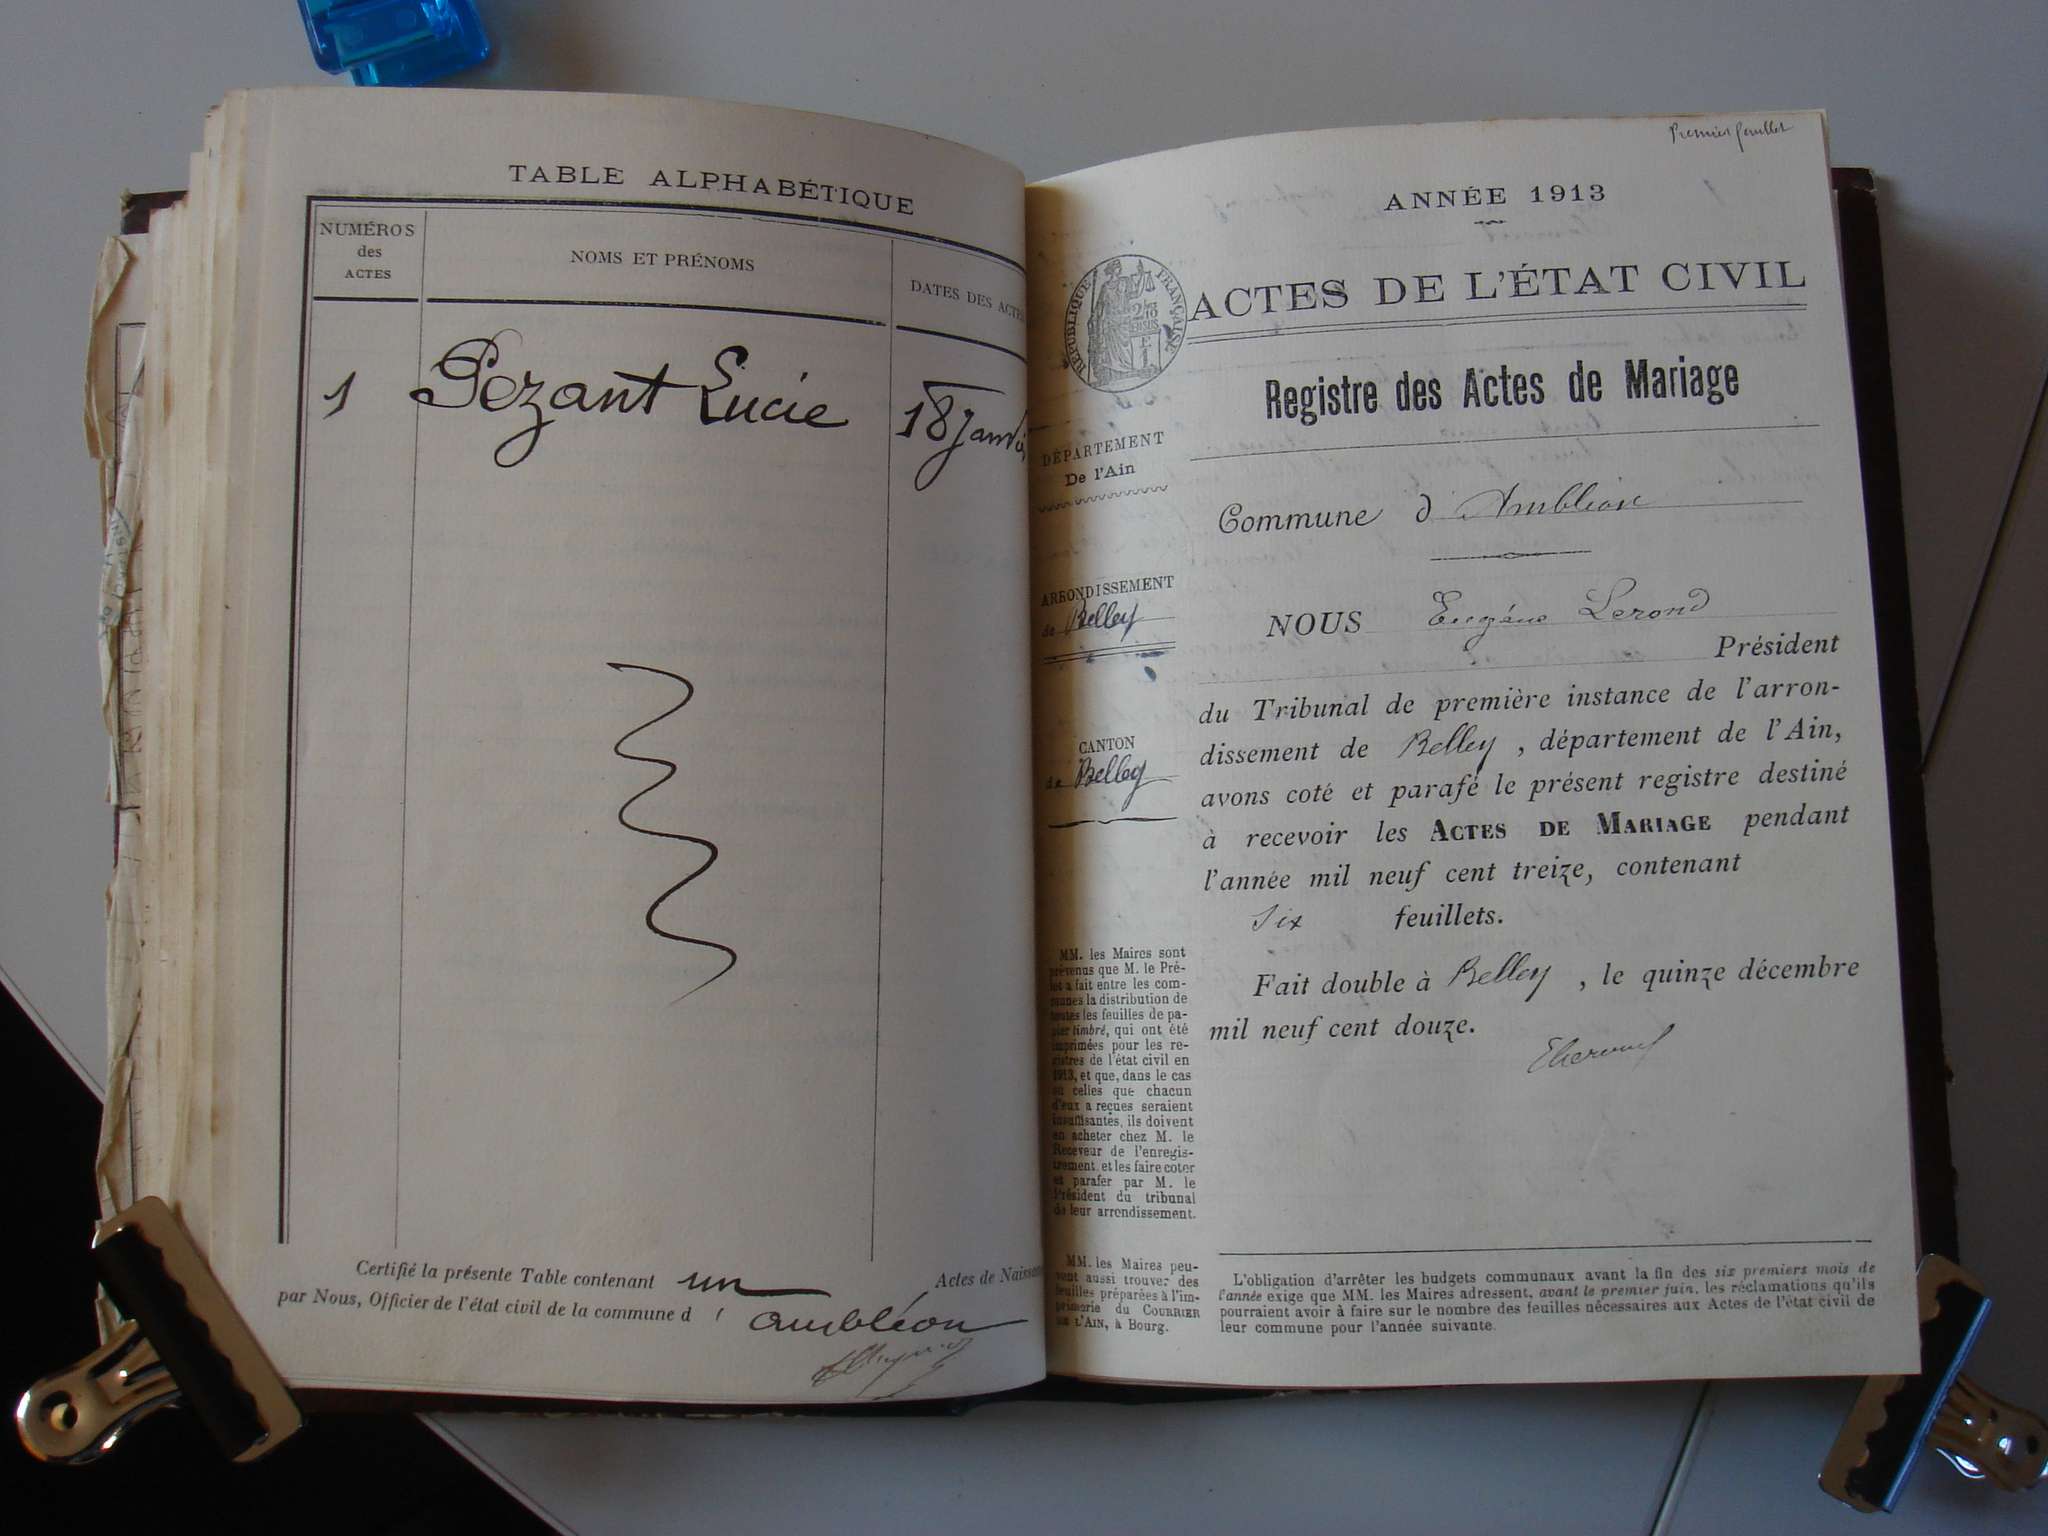 TABLE ALPHABÉTIQUE
NUMÉROS
des
ACTES
NOMS ET PRÉNOMS
DATES DES ACTES
1 Pezant Lucie 18 Janvi
Certifié la présente Table contenant un Actes de Naissan
par Nous, Officier de l'état civil de la commune d'
ambléon
Premier feuillet
ANNÉE 1913
RÉPUBLIQUE FRANÇAISE
ACTES DE L'ÉTAT CIVIL
Registre des Actes de Mariage
DÉPARTEMENT
De l'Ain
Commune d'Ambléon
ARRONDISSEMENT
de Belley
NOUS Eugéne
Président
du Tribunal de première instance de l'arron-
dissement de Belley, département de l'Ain,
CANTON
de Belley
avons coté et parafé le présent registre destiné
à recevoir les ACTES DE MARIAGE pendant
l'année mil neuf cent treize, contenant
Six feuillets.
Fait double à Belley, le quinze décembre
mil neuf cent douze.
MM. les Maires sont
prévenus que M. le Pré-
fet a fait entre les com-
munes la distribution de
toutes les feuilles de pa-
pier timbré, qui ont été
imprimées pour les re-
gistres de l'état civil en
1913, et que, dans le cas
où celles que chacun
d'eux a reçues seraient
insuffisantes, ils doivent
en acheter chez M. le
Receveur de l'enregis-
trement, et les faire coter
et parafer par M. le
Président du tribunal
de leur arrondissement.
MM. les Maires peu-
vent aussi trouver des
feuilles préparées à l'im-
primerie du COURRIER
DE L'AIN, à Bourg.
L'obligation d'arrêter les budgets communaux avant la fin des six premiers mois de
l'année exige que MM. les Maires adressent, avant le premier juin, les réclamations qu'ils
pourraient avoir à faire sur le nombre des feuilles nécessaires aux Actes de l'état civil de
leur commune pour l'année suivante.